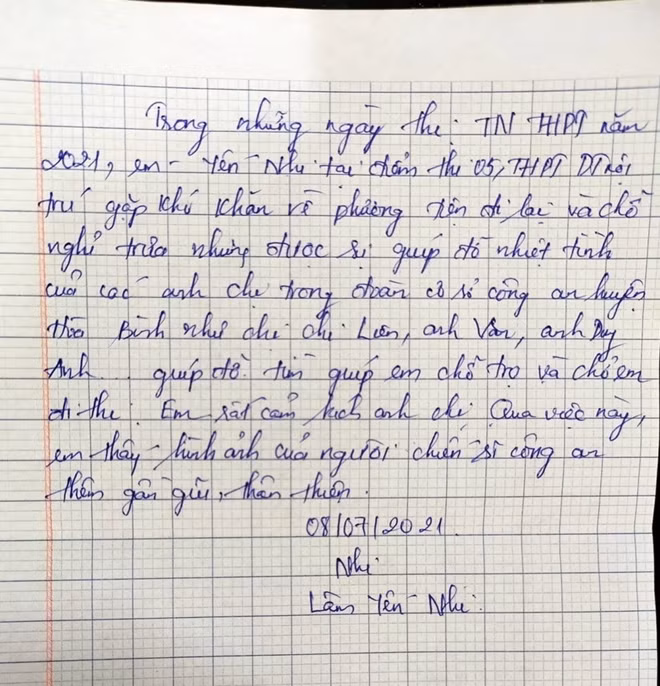 Trong những ngày thi TN THPT năm
2021, em - Yên Nhi tại điểm thi 05, THPT DT nội
trú gặp khó khăn về phương tiện đi lại và chỗ
nghỉ trưa nhưng được sự giúp đỡ nhiệt tình
của các anh chị trong đoàn cơ sở công an huyện
Hòa Bình như chị chị Liên, anh Văn, anh Duy
Anh... giúp đỡ tìm giúp em chỗ trọ và chở em
đi thi. Em rất cảm kích anh chị. Qua việc này,
em thấy hình ảnh của người chiến sĩ công an
thêm gần gũi, thân thiện.
08/07/2021.
Nhi
Lâm Yên Nhi.